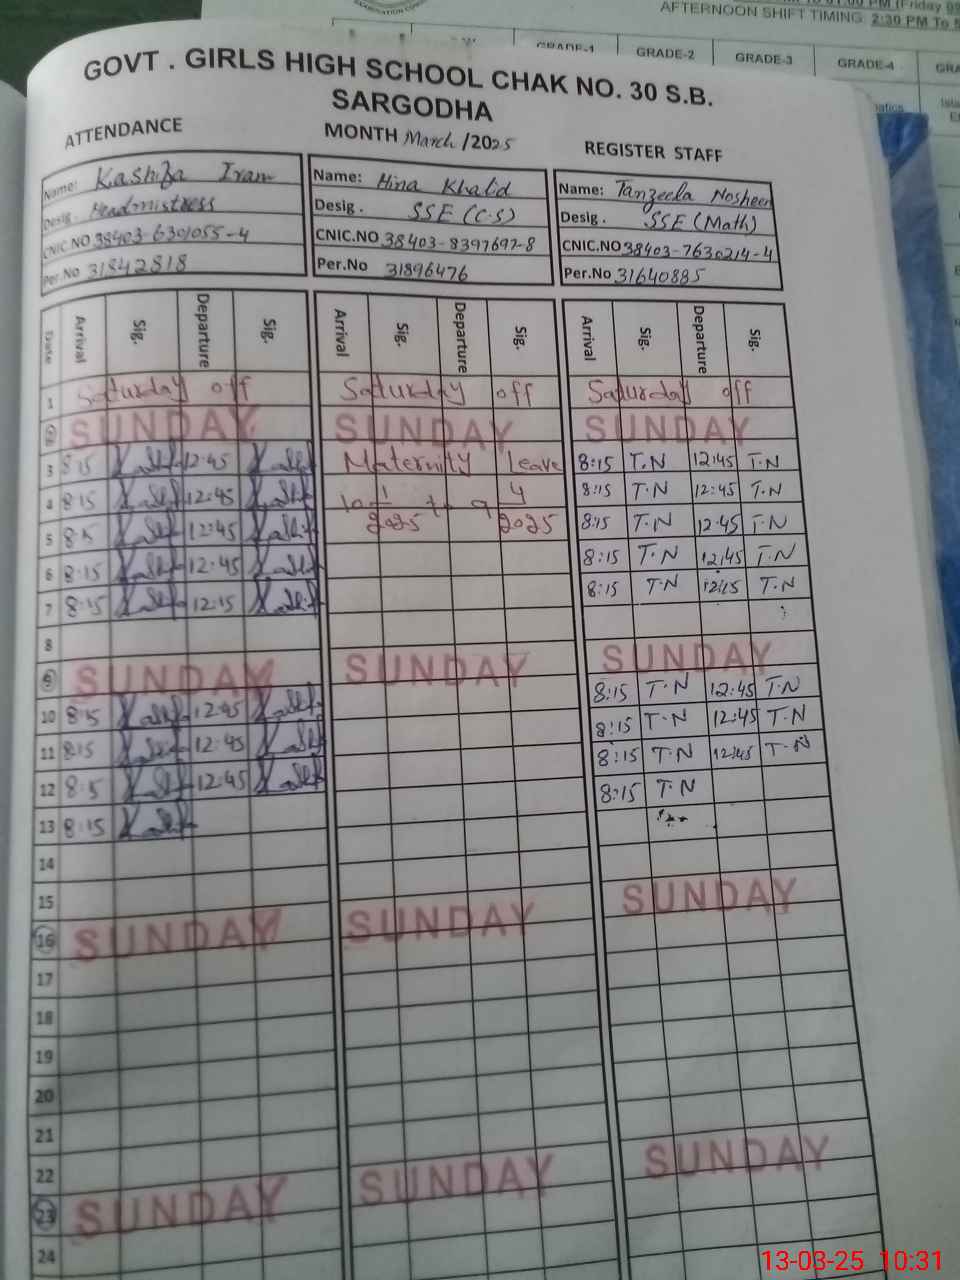 PM (Friday
AFTERNOON SHIFT TIMING: 2:30 PM To
GRADE-1 GRADE-2 GRADE-3 GRADE-4
GOVT . GIRLS HIGH SCHOOL CHAK NO. 30 S.B.
SARGODHA
ATTENDANCE MONTH March /2025 REGISTER STAFF
Name: Kashifa Iram Name: Hina Khalid Name: Tanzeela Nosheen
Desig. Headmistress Desig. SSE (C.S) Desig. SSE (Math)
CNIC.NO 38403-6301055-4 CNIC.NO 38403-8397697-8 CNIC.NO 38403-7630214-4
Per.No 31842818 Per.No 31896476 Per.No 31640885
Date Arrival Sig. Departure Sig. Arrival Sig. Departure Sig. Arrival Sig. Departure Sig.
1 Saturday off Saturday off Saturday off
2 SUNDAY SUNDAY SUNDAY
3 8:15 12:45 Maternity Leave 8:15 T.N 12:45 T.N
4 8:15 12:45 10 1 2025 to 9 4 2025 8:15 T.N 12:45 T.N
5 8:15 12:45 8:15 T.N 12:45 T.N
6 8:15 12:45 8:15 T.N 12:45 T.N
7 8:15 12:15 8:15 T.N 12:15 T.N
8
9 SUNDAY SUNDAY SUNDAY
10 8:15 12:45 8:15 T.N 12:45 T.N
11 8:15 12:45 8:15 T.N 12:45 T.N
12 8:15 12:45 8:15 T.N 12:45 T.N
13 8:15 8:15 T.N
14
15
16 SUNDAY SUNDAY SUNDAY
17
18
19
20
21
22
23 SUNDAY SUNDAY SUNDAY
24
13-03-25 10:31